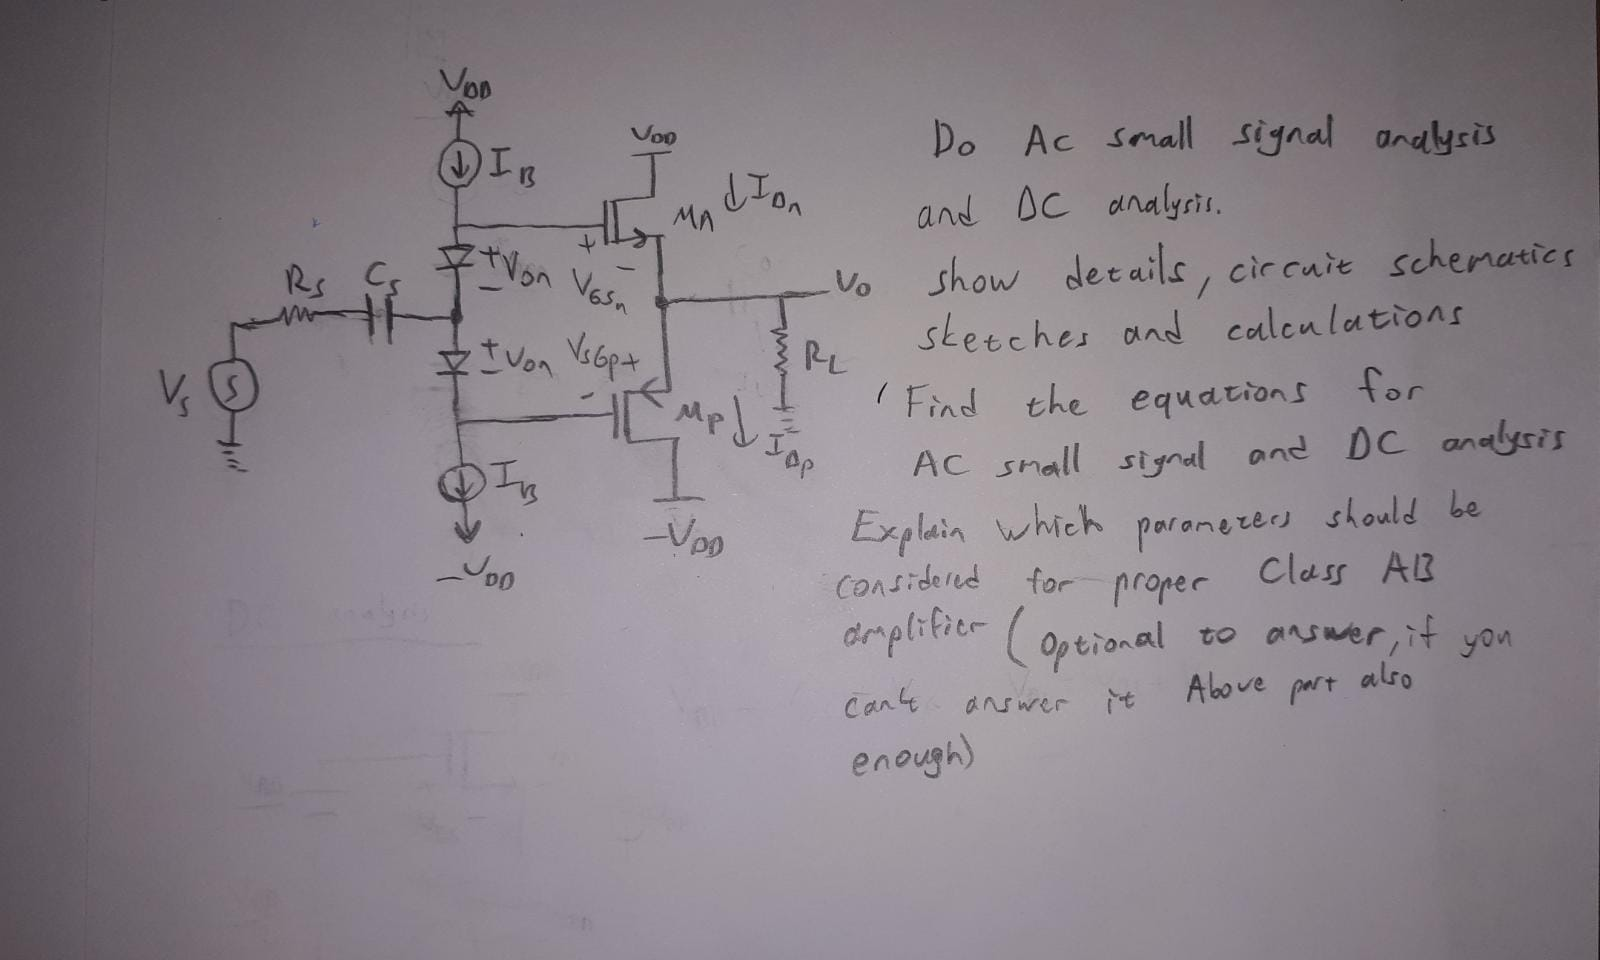 VDD
IB
VDD
Mn ↓IDn
+
+ VDn
-
VGSn
-
Rs Cs
Vo
+ VDn
-
VSGp +
-
RL
Vs
S
Mp ↓ IDp
IB
-VDD
-VDD
Do AC small signal analysis
and DC analysis.
show details, circuit schematics
sketches and calculations
Find the equations for
AC small signal and DC analysis
Explain which parameters should be
considered for proper Class AB
amplifier (optional to answer, if you
can't answer it Above part also
enough)